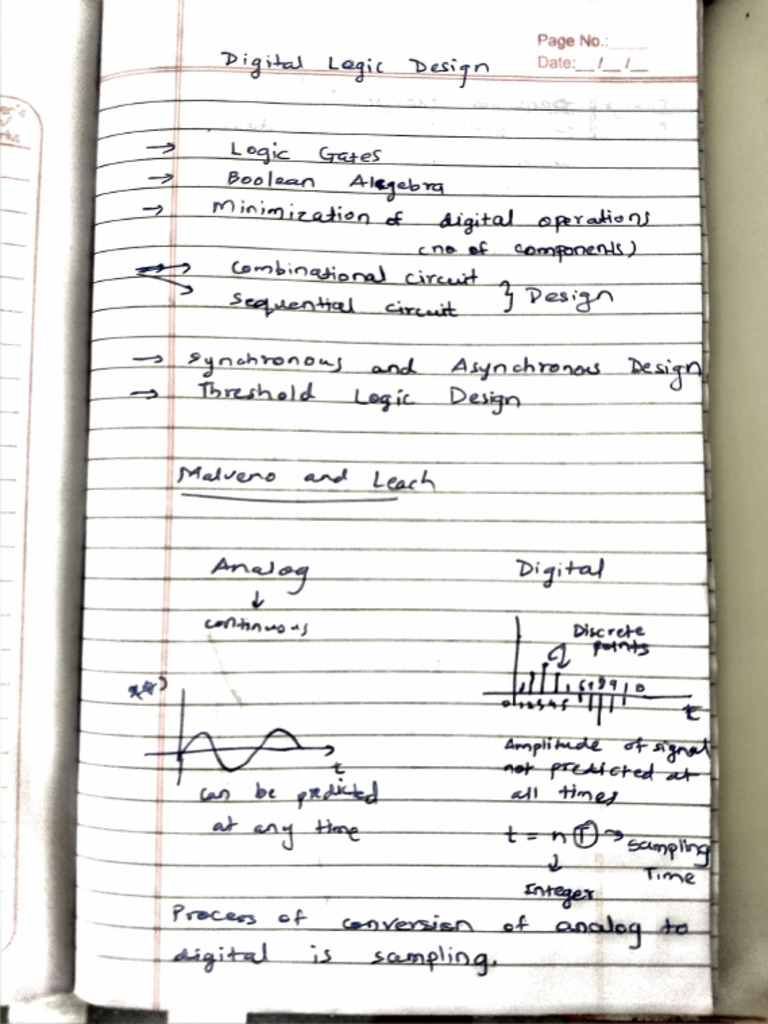 Page No.:
Date: __/__/__
Digital Logic Design
→ Logic Gates
→ Boolean Algebra
→ Minimization of digital operations
(no of components)
→ Combinational circuit
→ Sequential circuit } Design
→ Synchronous and Asynchronous Design
→ Threshold Logic Design
Malveno and Leach
Analog
↓
continuous
t
can be predicted
at any time
Digital
Discrete
points
t
Amplitude of signal
not predicted at
all times
t = n T → Sampling
Time
↓
Integer
Process of conversion of analog to
digital is sampling.